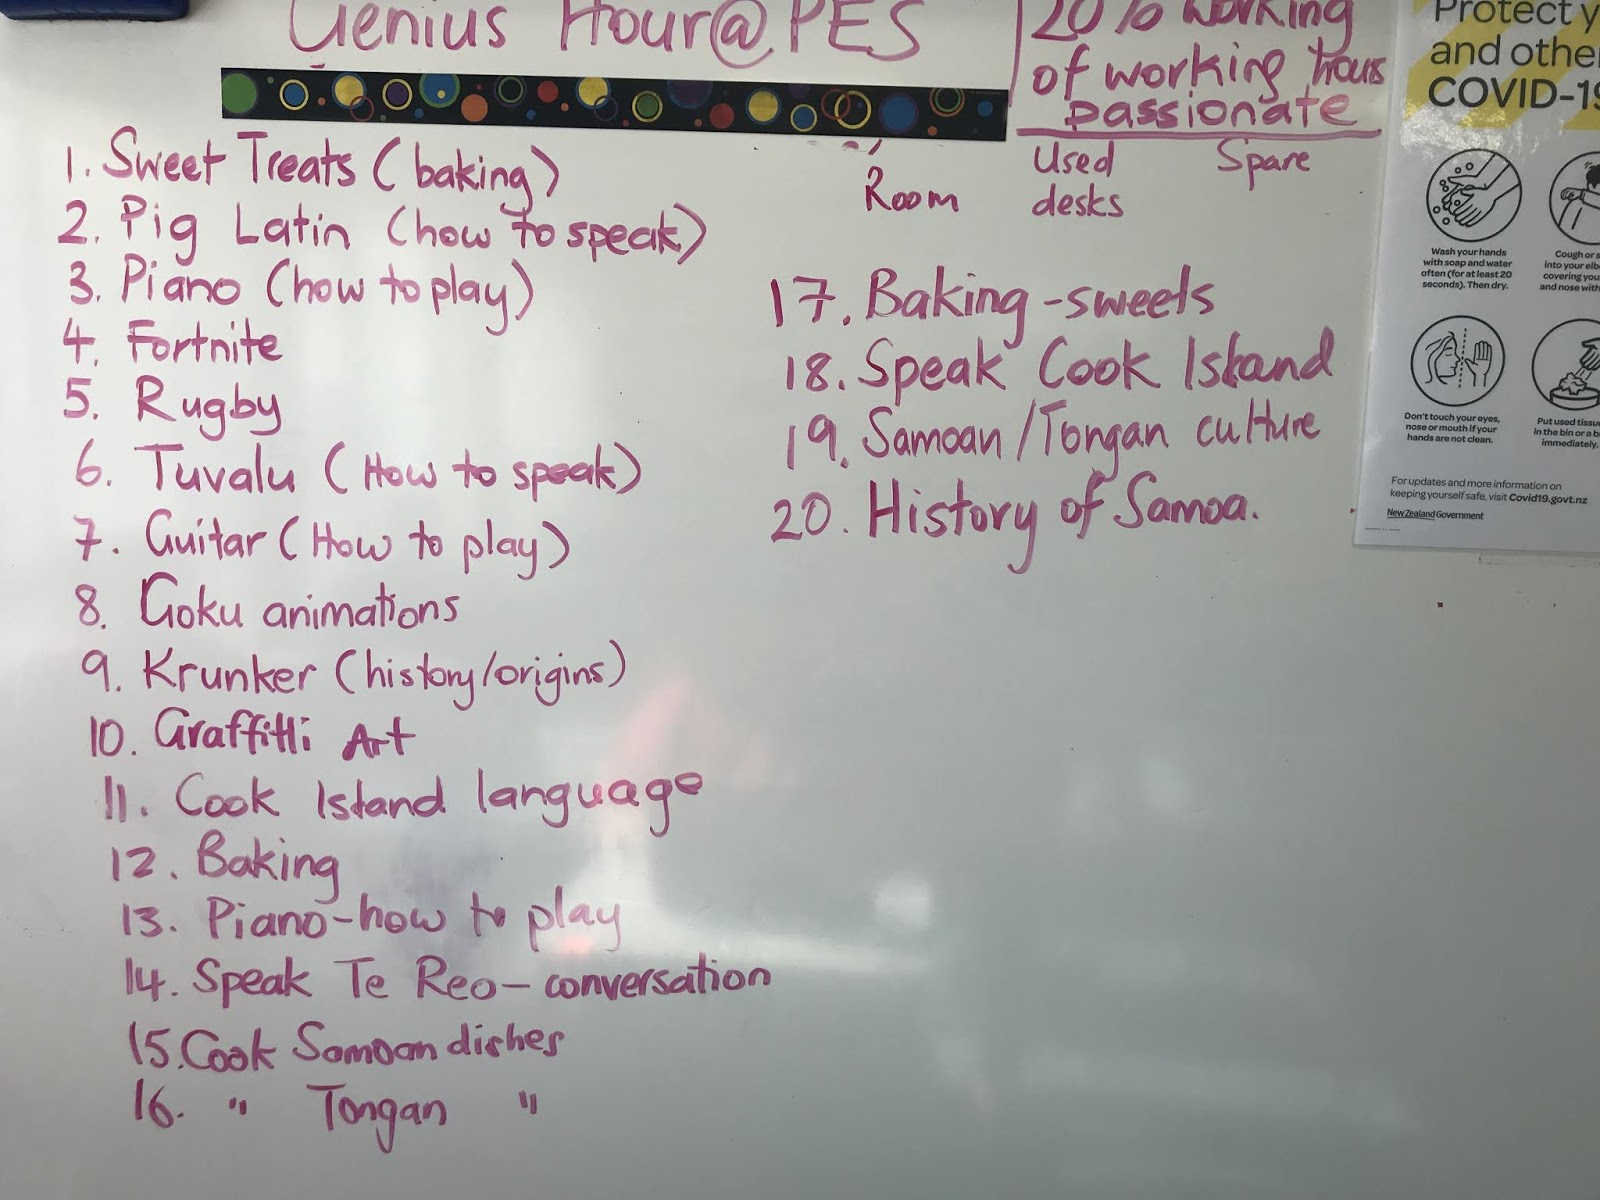 Genius Hour@PES
20% working
of working hours
passionate
1. Sweet Treats (baking)
2. Pig Latin (how to speak)
3. Piano (how to play)
4. Fortnite
5. Rugby
6. Tuvalu (How to speak)
7. Guitar (How to play)
8. Goku animations
9. Krunker (history/origins)
10. Graffitti Art
11. Cook Island language
12. Baking
13. Piano-how to play
14. Speak Te Reo-conversation
15. Cook Samoan dishes
16. " Tongan "
Room
Used
desks
Spare
17. Baking-sweets
18. Speak Cook Island
19. Samoan/Tongan culture
20. History of Samoa.
Protect y
and othe
COVID-19
Wash your hands
with soap and water
often (for at least 20
seconds). Then dry.
Cough or s
into your elb
covering you
and nose with
Don't touch your eyes,
nose or mouth if your
hands are not clean.
Put used tissu
in the bin or a b
immediately.
For updates and more information on
keeping yourself safe, visit Covid19.govt.nz
New Zealand Government